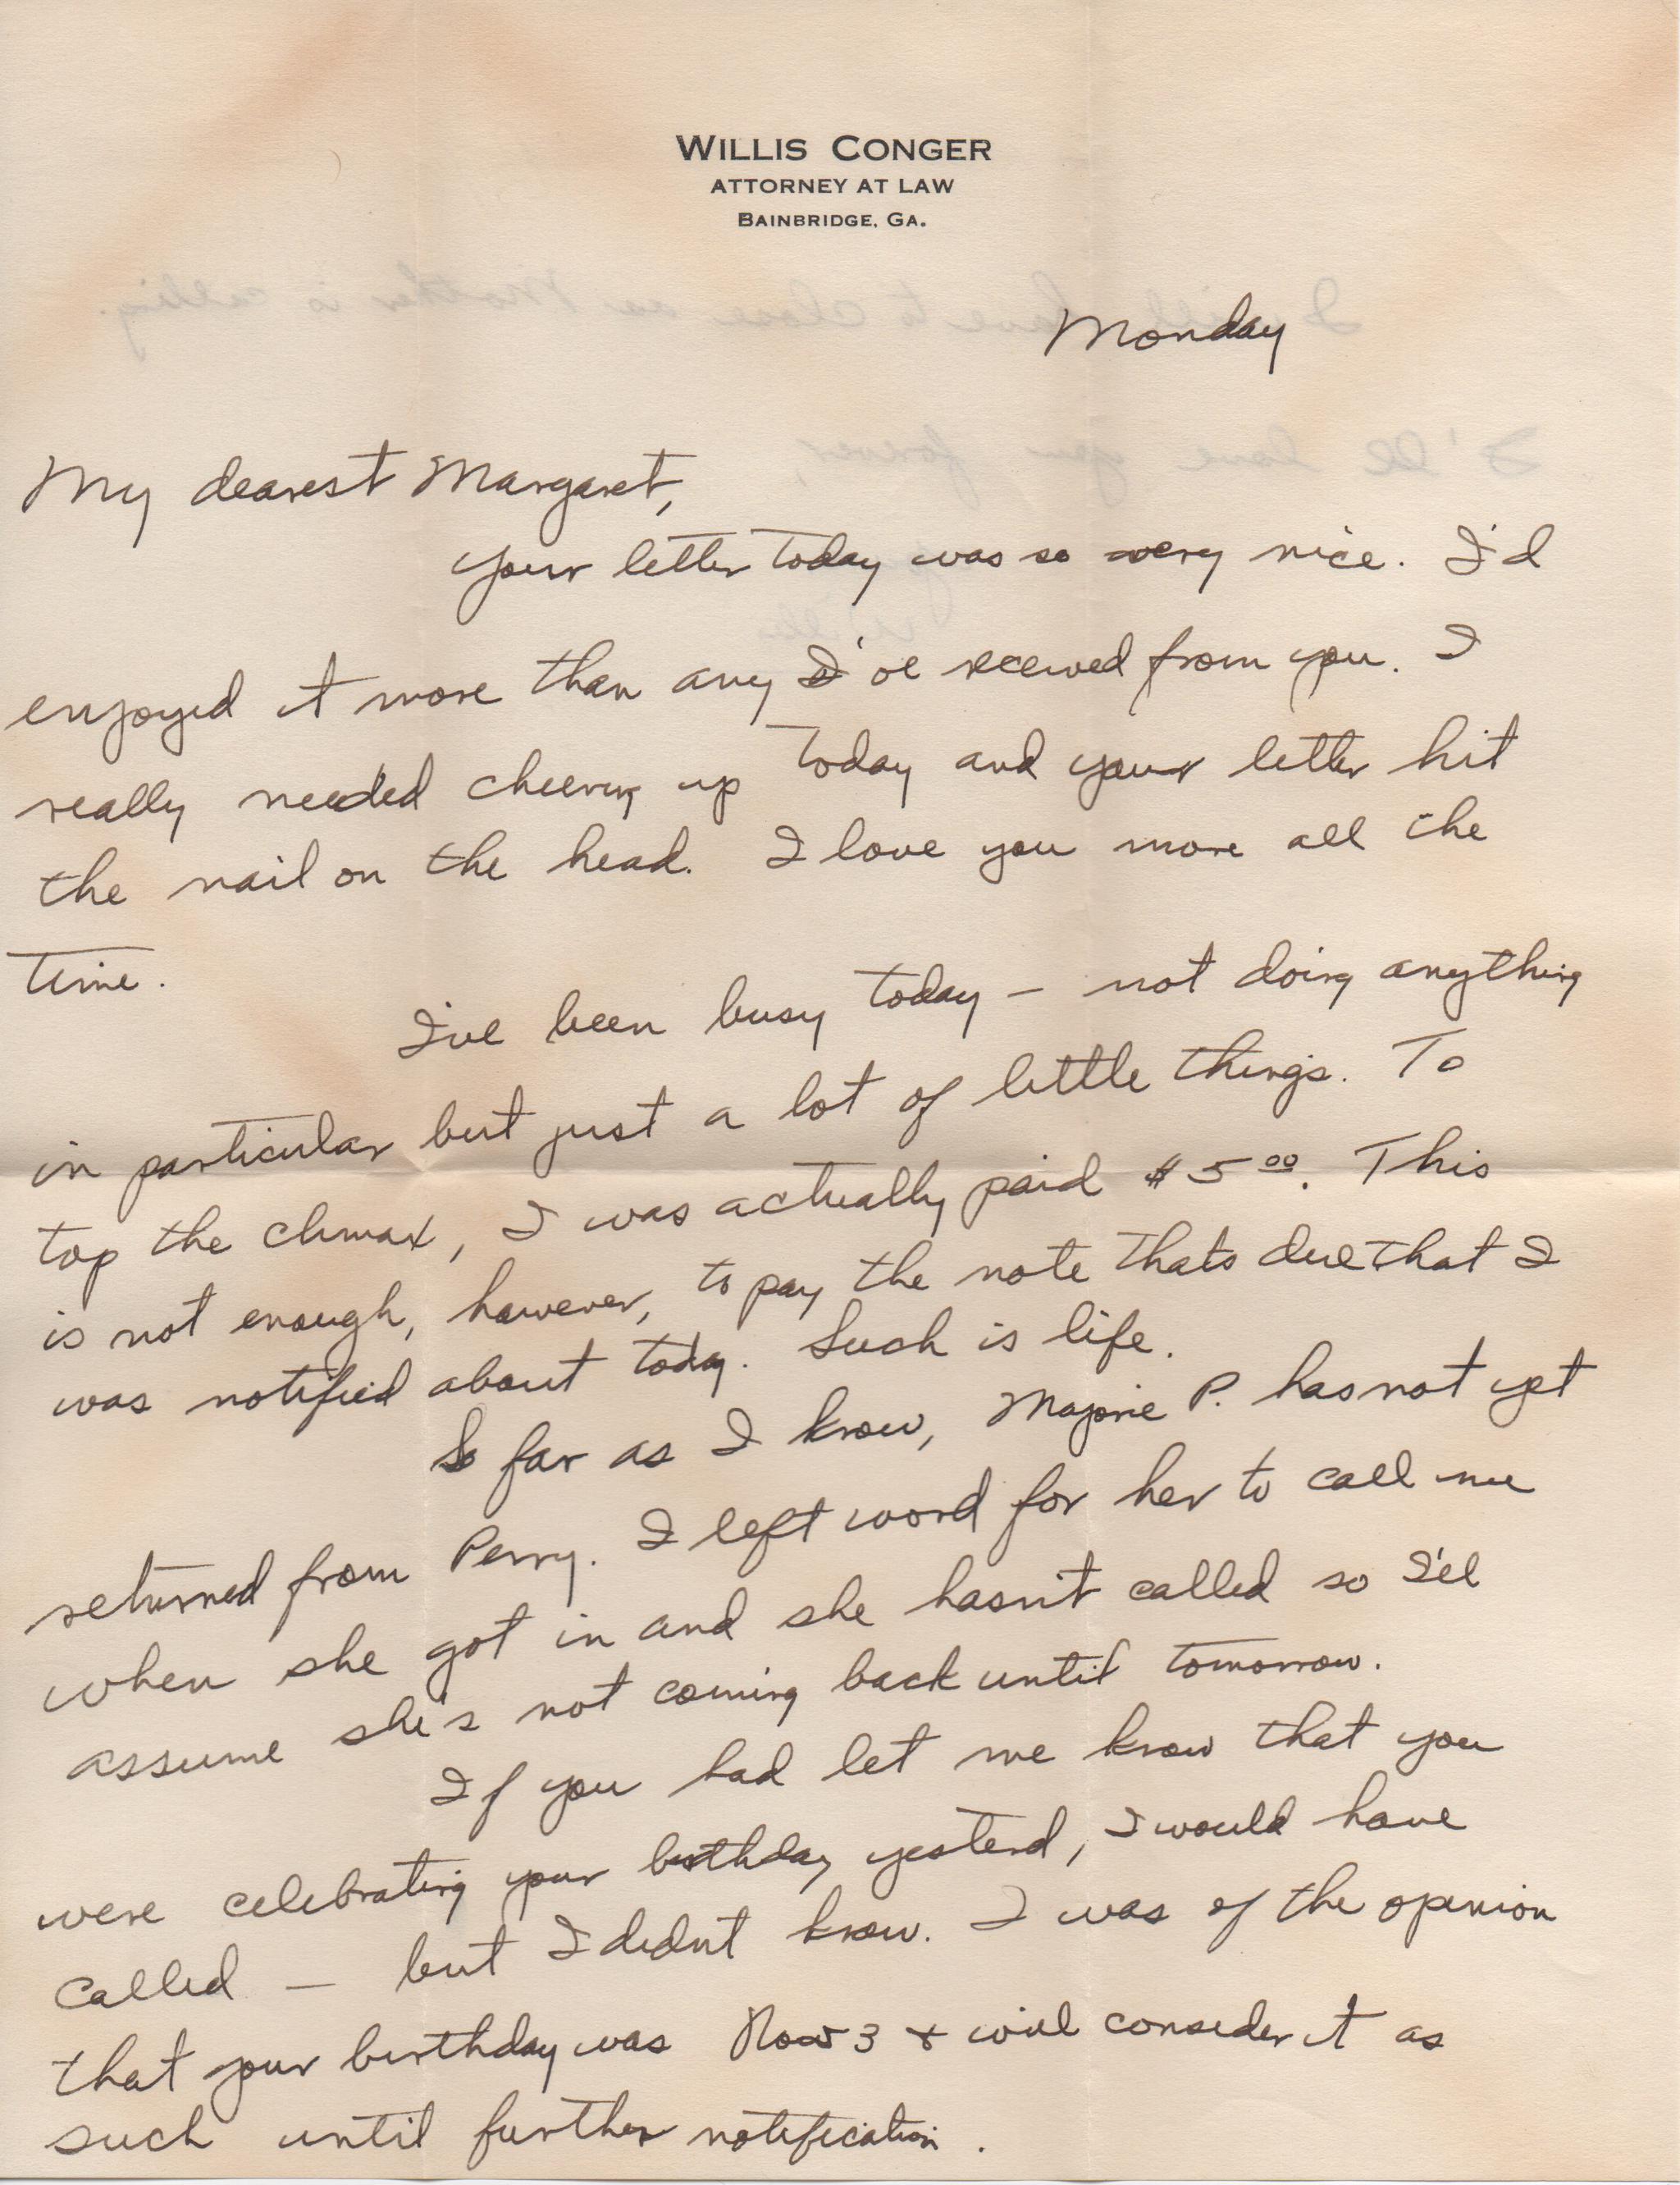 WILLIS CONGER
ATTORNEY AT LAW
BAINBRIDGE, GA.
Monday
My dearest Margaret,
Your letter today was so very nice. I'd
enjoyed it more than any I've received from you. I
really needed cheering up today and your letter hit
the nail on the head. I love you more all the
time.
I've been busy today — not doing anything
in particular but just a lot of little things. To
top the climax, I was actually paid $5.00. This
is not enough, however, to pay the note thats due that I
was notified about today. Such is life.
So far as I know, Majorie P. has not yet
returned from Perry. I left word for her to call me
when she got in and she hasn't called so I'll
assume she's not coming back until tomorrow.
If you had let me know that you
were celebrating your birthday yesterd, I would have
called — but I didnt know. I was of the opinion
that your birthday was Nov 3 & will consider it as
such until further notification.
I will have to close as Mother is calling.
I'll love you forever,